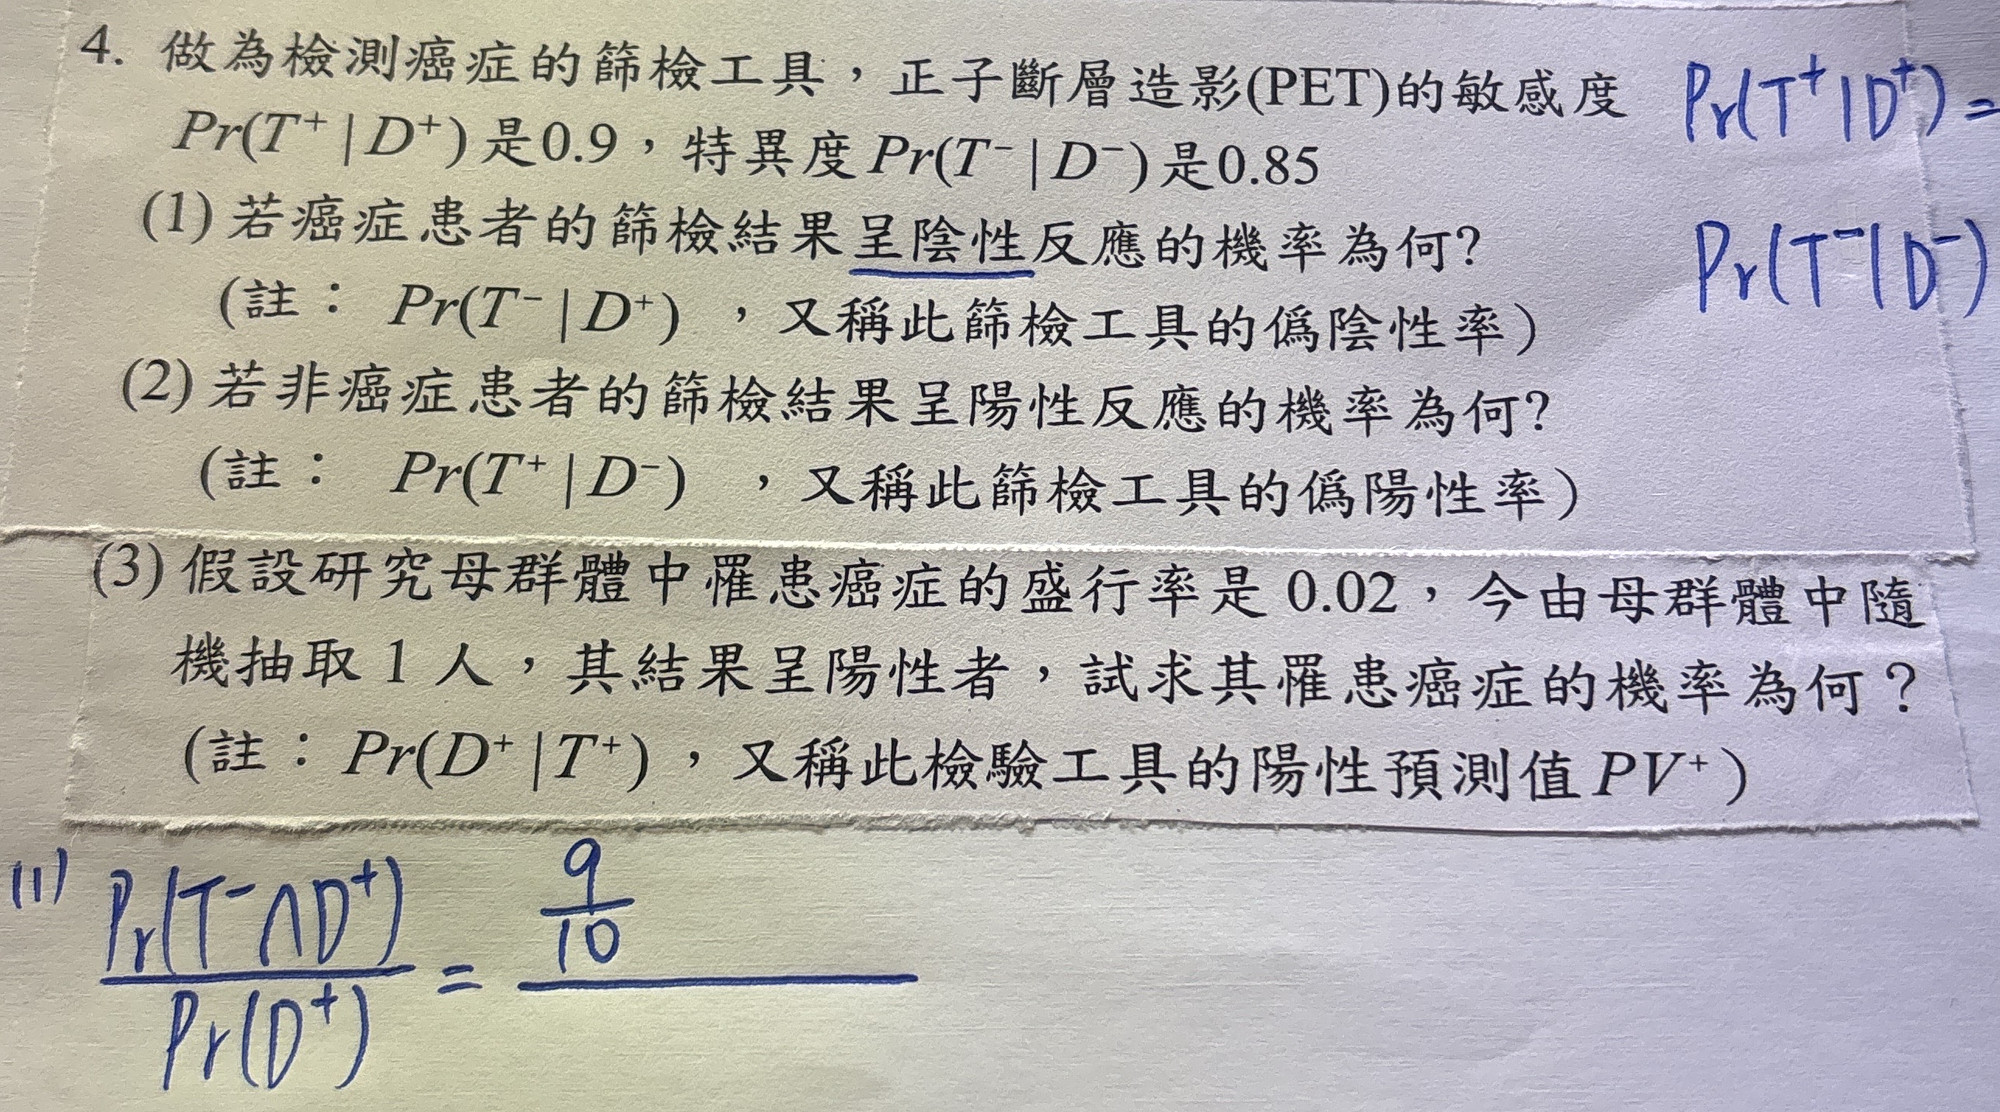 4. 做為檢測癌症的篩檢工具，正子斷層造影(PET)的敏感度
Pr(T⁺ | D⁺) 是0.9，特異度 Pr(T⁻ | D⁻) 是0.85
(1) 若癌症患者的篩檢結果呈陰性反應的機率為何?
(註： Pr(T⁻ | D⁺) ，又稱此篩檢工具的偽陰性率)
(2) 若非癌症患者的篩檢結果呈陽性反應的機率為何?
(註： Pr(T⁺ | D⁻) ，又稱此篩檢工具的偽陽性率)
(3) 假設研究母群體中罹患癌症的盛行率是 0.02，今由母群體中隨
機抽取 1 人，其結果呈陽性者，試求其罹患癌症的機率為何？
(註：Pr(D⁺ | T⁺)，又稱此檢驗工具的陽性預測值 PV⁺)
Pr(T⁺ | D⁺) =
Pr(T⁻ | D⁻)
(1) Pr(T⁻ ∩ D⁺) / Pr(D⁺) = 9/10